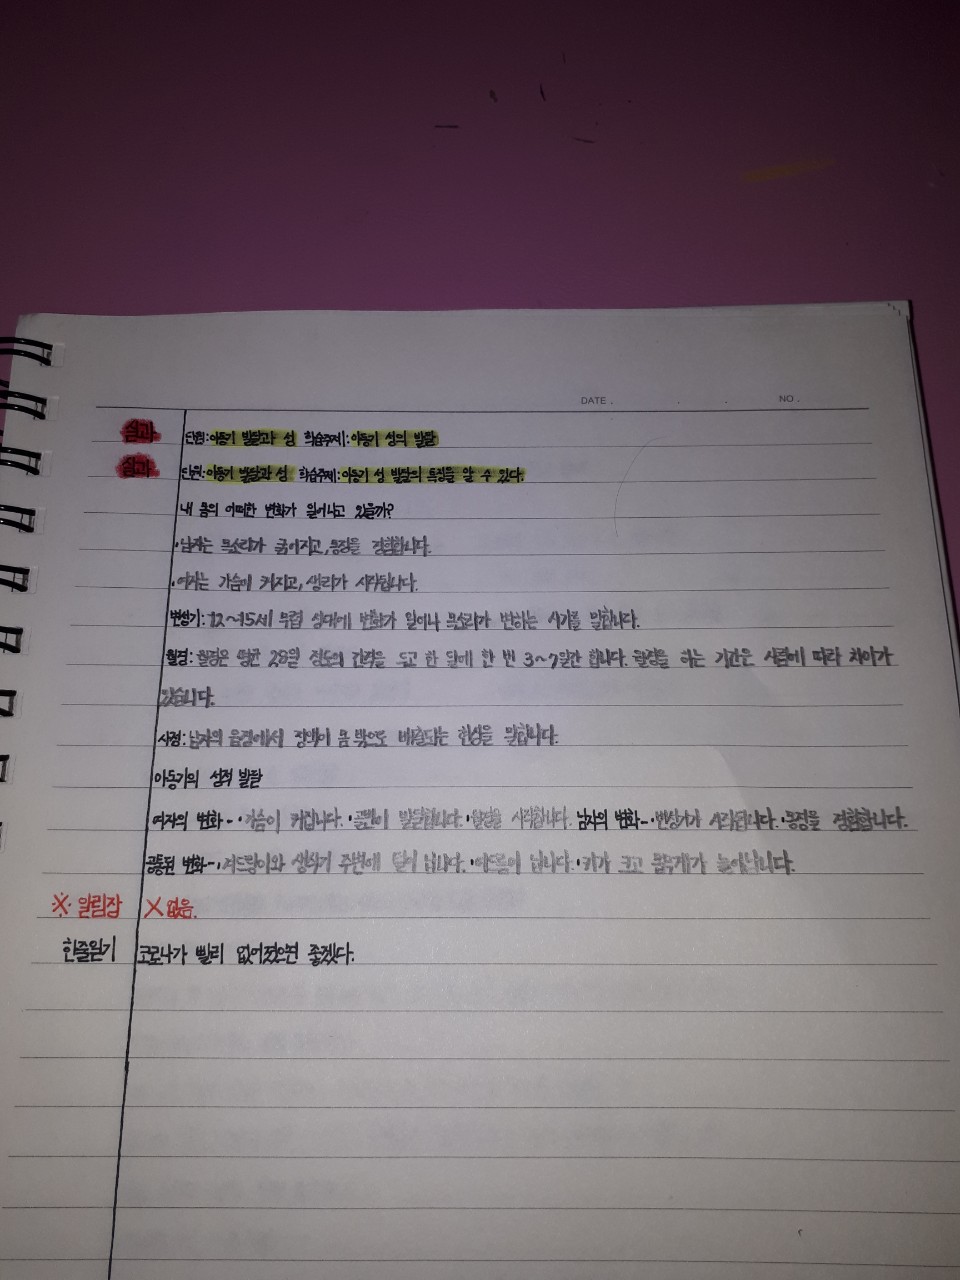 DATE . . . NO .
실과 단원:아동기 발달과 성 학습주제:아동기 성의 발달
실과 단원:아동기 발달과 성 학습주제:아동기 성 발달의 특징을 알 수 있다.
내 몸의 어떠한 변화가 일어나고 있을까?
·남자는 목소리가 굵어지고, 몽정을 경험합니다.
·여자는 가슴이 커지고, 생리가 시작됩니다.
변성기: 12~15세 무렵 성대에 변화가 일어나 목소리가 변하는 시기를 말합니다.
월경: 월경은 평균 28일 정도의 간격을 두고 한 달에 한 번 3~7일간 합니다. 월경을 하는 기간은 사람에 따라 차이가
있습니다.
사정: 남자의 음경에서 정액이 몸 밖으로 배출되는 현상을 말합니다.
아동기의 성적 발달
여자의 변화-·가슴이 커집니다.·골반이 발달합니다.·월경을 시작합니다. 남자의 변화-·변성기가 시작됩니다.·몽정을 경험합니다.
공통된 변화-·겨드랑이와 생식기 주변에 털이 납니다.·여드름이 납니다.·키가 크고 몸무게가 늘어납니다.
※ 알림장 X없음.
한줄일기 코로나가 빨리 없어졌으면 좋겠다.